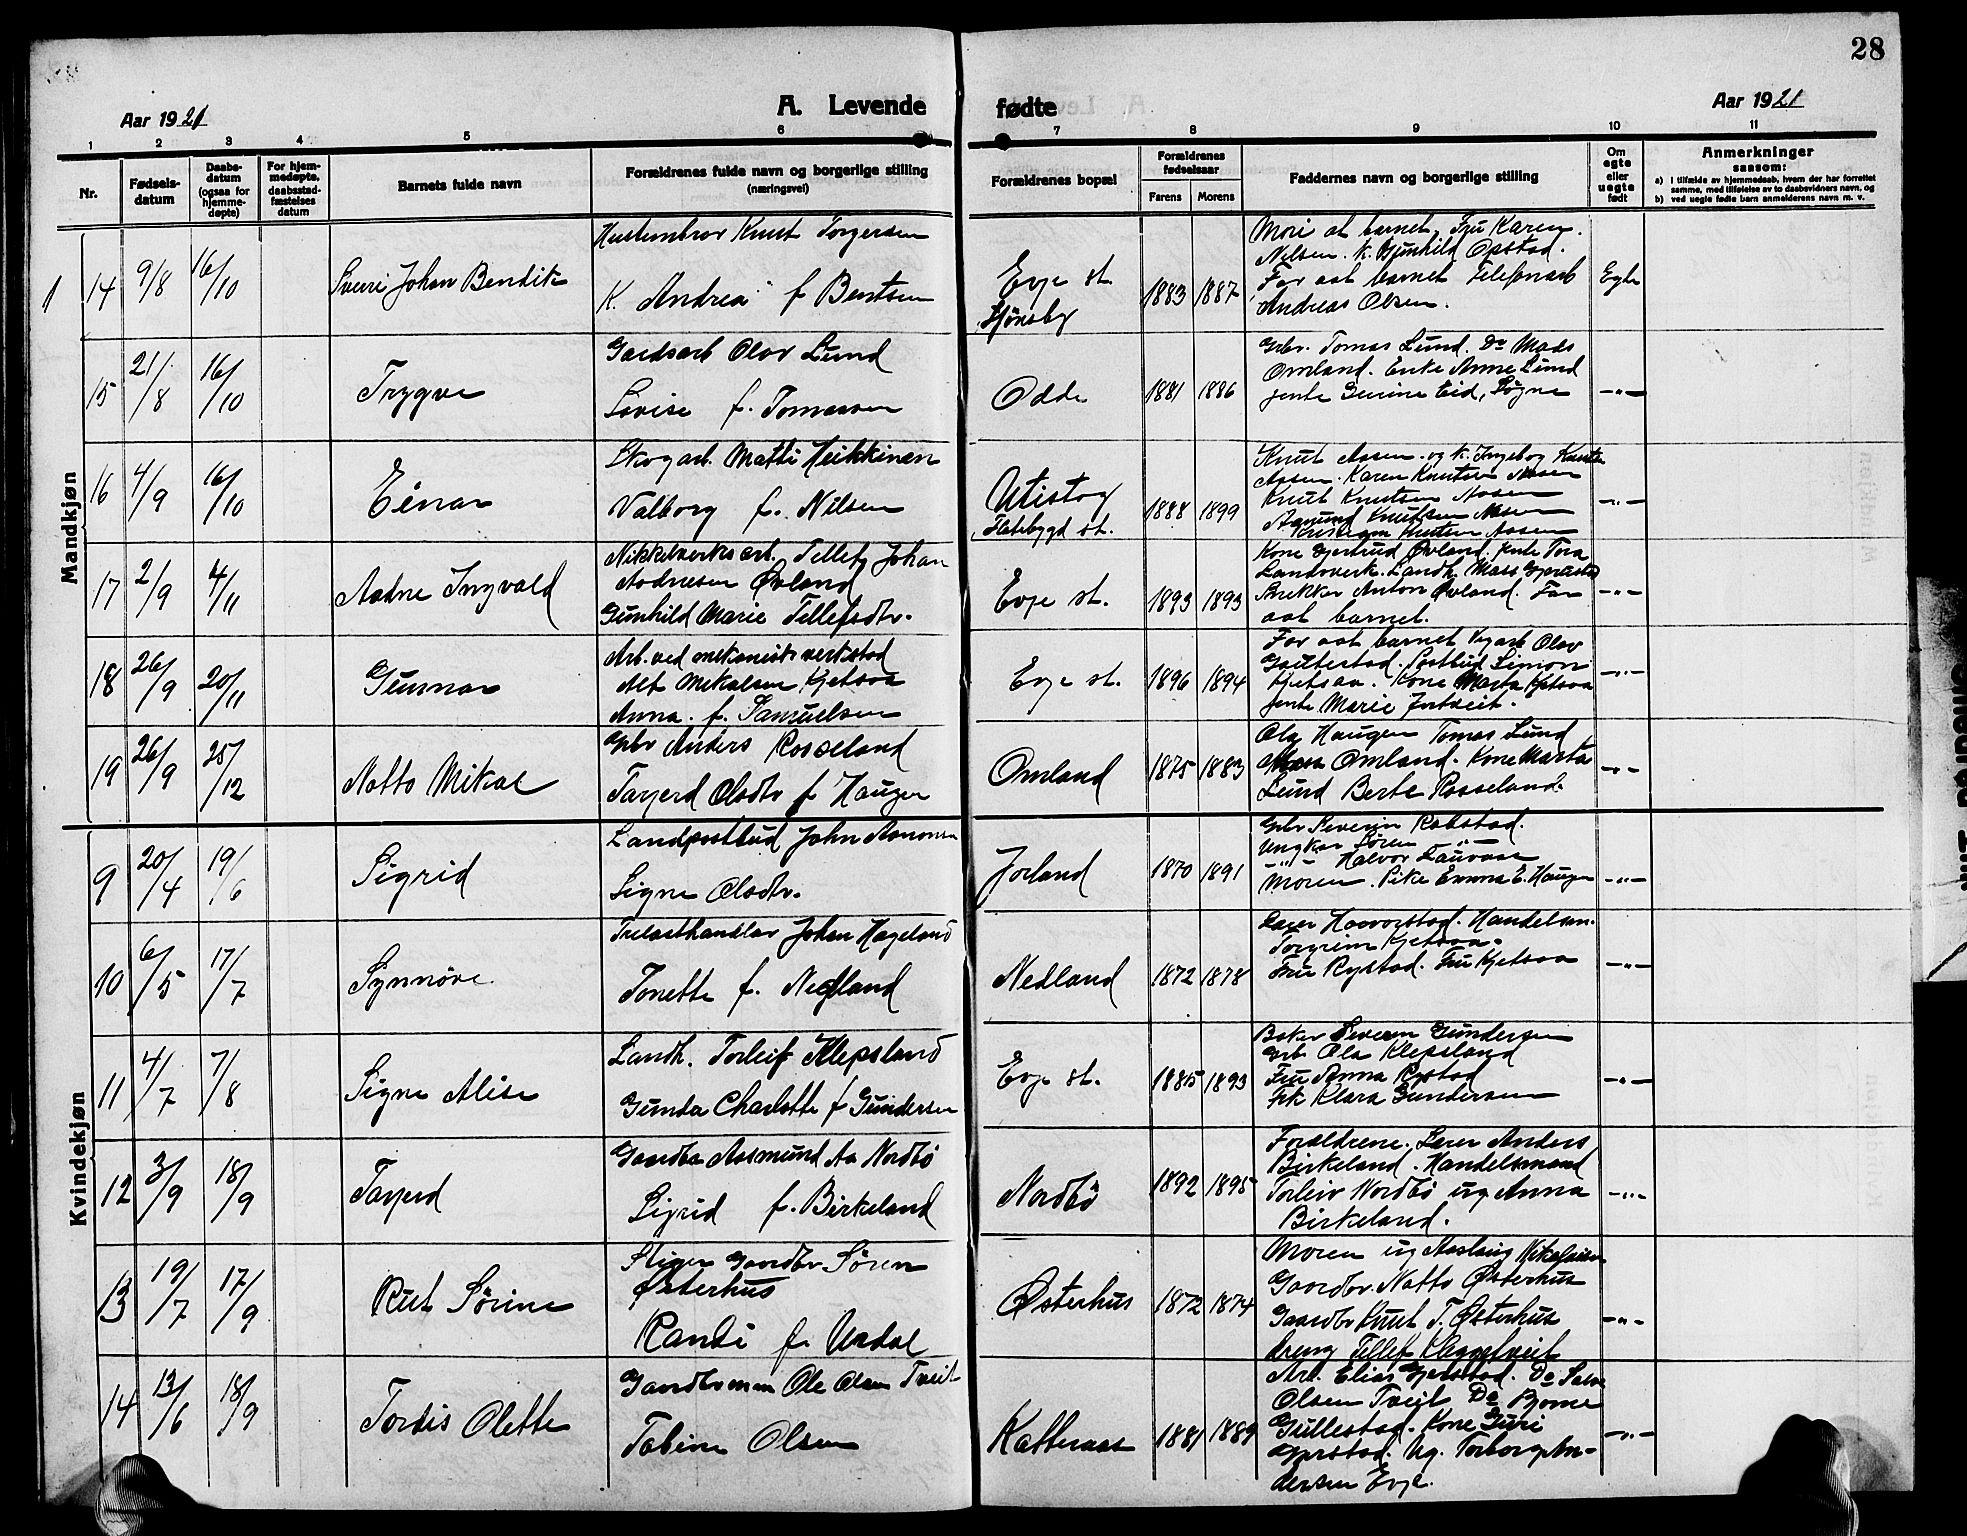 28
Aar 1921
A. Levende fødte
Aar 1921
1 2 3 4 5 6 7 8 9 10 11
Nr.
Fødsels-
datum
Daabs-
datum
(ogsaa for
hjemme-
døpte)
For hjem-
medøpte,
daabsstad-
fæstelses
datum
Barnets fulde navn
Forældrenes fulde navn og borgerlige stilling
(næringsvei)
Forældrenes bopæl
Forældrenes
fødselsaar
Farens Morens
Faddernes navn og borgerlige stilling
Om
egte
eller
uegte
født
Anmerkninger
saasom:
a) i tilfælde av hjemmedaab, hvem der har forrettet
samme, med tilføielse av to daabsvidners navn, og
b) ved uegte fødte barn anmelderens navn m. v.
Mandkjøn
1
14 9/8 16/10
Sverri Johan Bendik
Knut Torgersen
K. Andrea f Bentsen
Evje st.
1883 1887
Mori at barnet, Fru Karen
Nilsen. K. Gunhild Opstad.
Far aat barnet Telefonarb
Andreas Olsen.
Egte
15 21/8 16/10
Trygve
Gardsarb Olav Lund
Lovise f. Tomassen
Odde
1881 1886
Gbr. Tomas Lund. Do Mads
Omland. Enke Anne Lund
jente Gurine Eid, Søgne
-"-
16 4/9 16/10
Einar
Skogarb. Matti Heikkinen
Valborg f. Nilsen
Utistog
Flatebygd st.
1888 1899
Knut Aasen og k. Ingebog Knuts
Aasen. Karen Knutsen Aasen
Knut Knutsen Aasen
Aanund Knutsen Aasen
Knutsen Aasen
-"-
17 2/9 4/11
Aadne Ingvald
Nikkelverksarb. Tellef Johan
Aadnesen Øvland
Gunhild Marie Tellefsdtr.
Evje st.
1893 1893
Kone Gjertrud Øvland. Jente Tora
Landsverk. Landh. Mass Gjerstad
Snikker Anton Øvland. Far
aat barnet.
-"-
18 26/9 20/11
Gunnar
Arb. ved mekanisk verkstad
Alf Mikalsen Kjetsaa
Anna f. Samuelsen
Evje st.
1896 1894
Far aat barnet Olav
Gautestad. Postbud Simon
Kjetsaa. Kone Marta Kjetsaa
Jente Marie Jortveit.
-"-
19 26/9 25/12
Notto Mikal
Gbr Anders Rosseland
Tarjerd Olsdtr f Haugen
Omland
1875 1883
Olaf Haugen Tomas Lund
Omland. Kone Marta
Lund Berte Rosseland.
-"-
Kvindekjøn
9 20/4 19/6
Sigrid
Landpostbud John Aanonsen
Signe Olsdtr.
Jorland
1870 1891
Gbr Severin Robstad.
Ungkar Søren -"-
-"- Halvor Fauvase
Moren. Pike Emma E. Haugen
-"-
10 6/5 17/7
Synnøve
Trelasthandlar Johan Hageland
Tonette f. Nedland
Nedland
1872 1878
Lærer Haavorstad. Handelsm.
Torgrim Kjetsaa.
Fru Rystad. Fru Kjetsaa
-"-
11 4/7 7/8
Signe Alise
Landh. Torleif Klepsland
Gunda Charlotte f Gundersen
Evje st.
1885 1893
Baker Severin Gundersen
Gbr Ola Klepsland
Fru Anna Rystad
Frk Klara Gundersen
-"-
12 3/9 18/9
Tarjerd
Gaardbr Aasmund Aa Nordbø
Sigrid f. Birkeland
Nordbø
1892 1895
Forældrene, Lærer Anders
Birkeland. Handelsmand
Torleiv Nordbø ug Anna
Birkeland.
-"-
13 19/7 17/9
Rut Sørine
Stiger Gaardbr. Søren
Østerhus
Randi f. Urdal
Østerhus
1872 1874
Moren ug Aaslaug
Gaardbr. Notto Østerhus
Gaardbr Knut T. Østerhus
dreng Tellef Kleggetveit
-"-
14 13/6 18/9
Tordis Olette
Gaardbrmann Ole Olsen Tveit
Tobine Olsen
Katteraas
1881 1889
Arb. Elias Gjerstad. Do Salve
Olsen Tveit Do Bjorne
Gullestad. Kone Guri
Gjerstad. Ug. Torborg An-
dersen Evje.
-"-